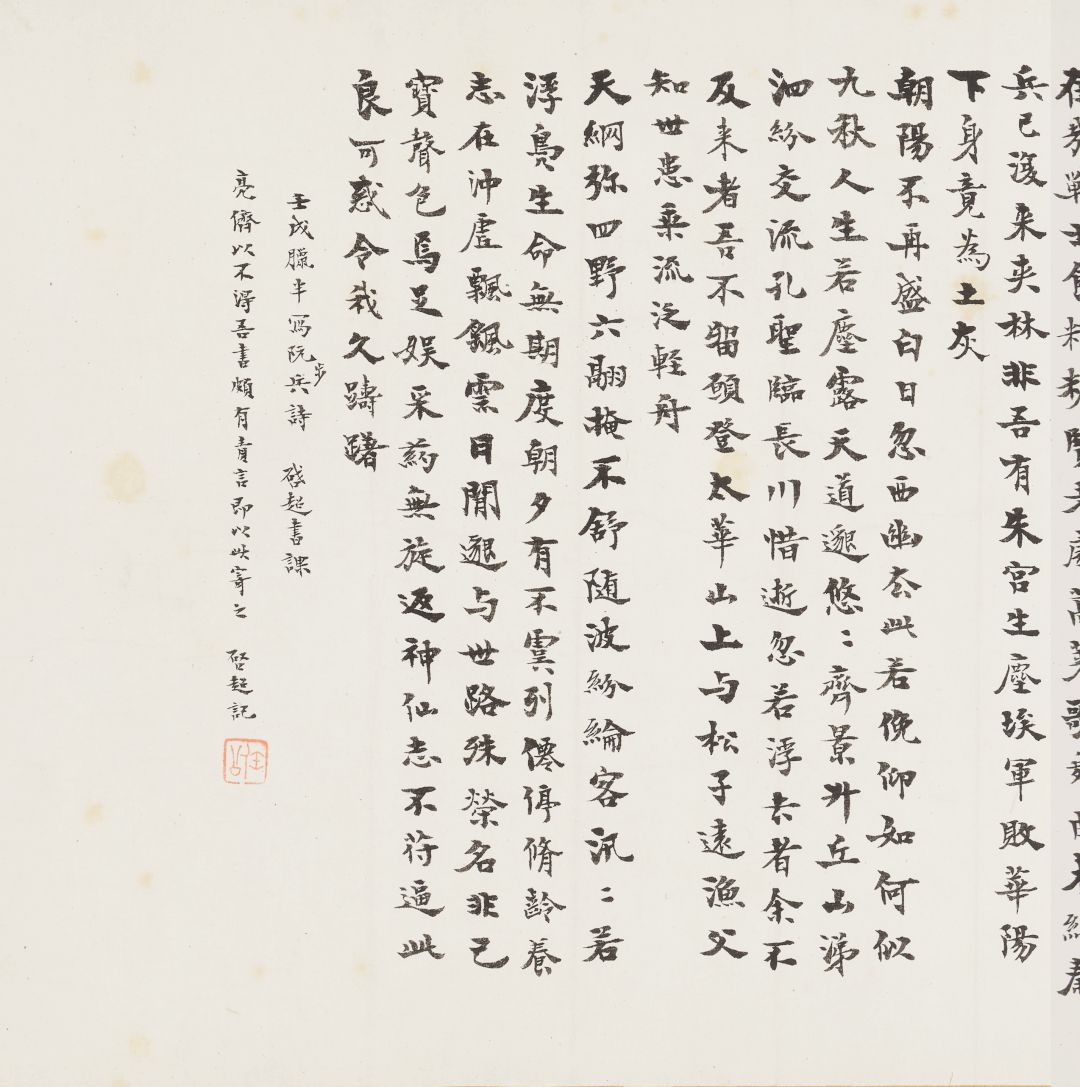 在哉戰士食糟糠賢者處蒿萊歌舞曲未終秦
兵已復来夾林非吾有朱宮生塵埃軍敗華陽
下身竟為土灰
朝陽不再盛白日忽西幽去此若俛仰如何似
九秋人生若塵露天道邈悠〻齊景升丘山涕
泗紛交流孔聖臨長川惜逝忽若浮去者余不
反来者吾不留願登太華山上与松子遠漁父
知世患乗流泛輕舟
天網弥四野六翮掩不舒随波紛綸客汎〻若
浮鳧生命無期度朝夕有不虞列僊停脩齡養
志在沖虛飄颻雲日間邈与世路殊榮名非己
寶聲色焉足娛采葯無旋返神仙志不苻逼此
良可惑令我久躊躇
壬戌臘半寫阮步兵詩 啟超書課
亮儕以不得吾書頗有責言即以此寄之 啓超記
任公